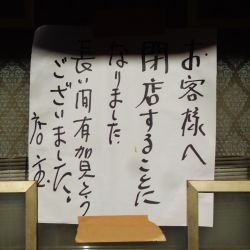 お客様へ
閉店することに
なりました
長い間有賀とう
ございました。
店主